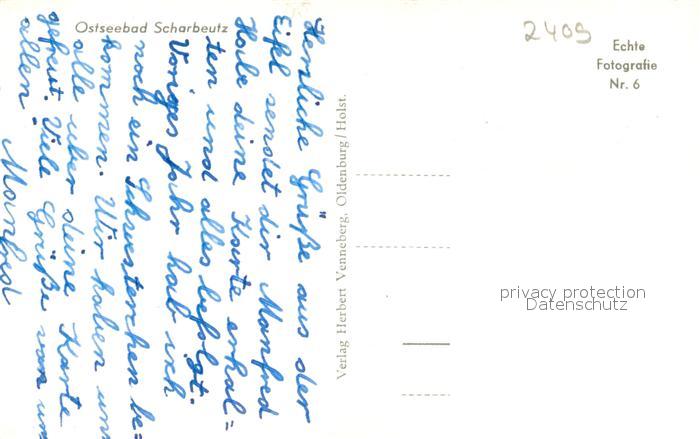 Ostseebad Scharbeutz
2409
Echte
Fotografie
Nr. 6
Herzliche Grüße aus der
Eifel sendet dir Manfred
Habe deine Karte erhal=
ten und alles befolgt.
Voriges Jahr hab ich
noch ein Schwesterchen be=
kommen. Wir haben uns
alle über deine Karte
gefreut. Viele Grüße von uns
allen
Manfred
Verlag Herbert Venneberg, Oldenburg/Holst.
privacy protection
Datenschutz